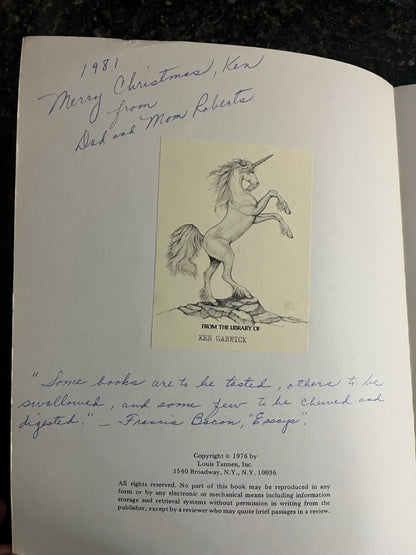 1981
Merry Christmas, Ken
from
Dad and Mom Roberts
FROM THE LIBRARY OF
KEN GARWICK
"Some books are to be tasted, others to be
swallowed, and some few to be chewed and
digested." — Francis Bacon, "Essays".
Copyright © 1976 by
Louis Tannen, Inc.
1540 Broadway, N.Y., N.Y. 10036
All rights reserved. No part of this book may be reproduced in any
form or by any electronic or mechanical means including information
storage and retrieval systems without permission in writing from the
publisher, except by a reviewer who may quote brief passages in a review.